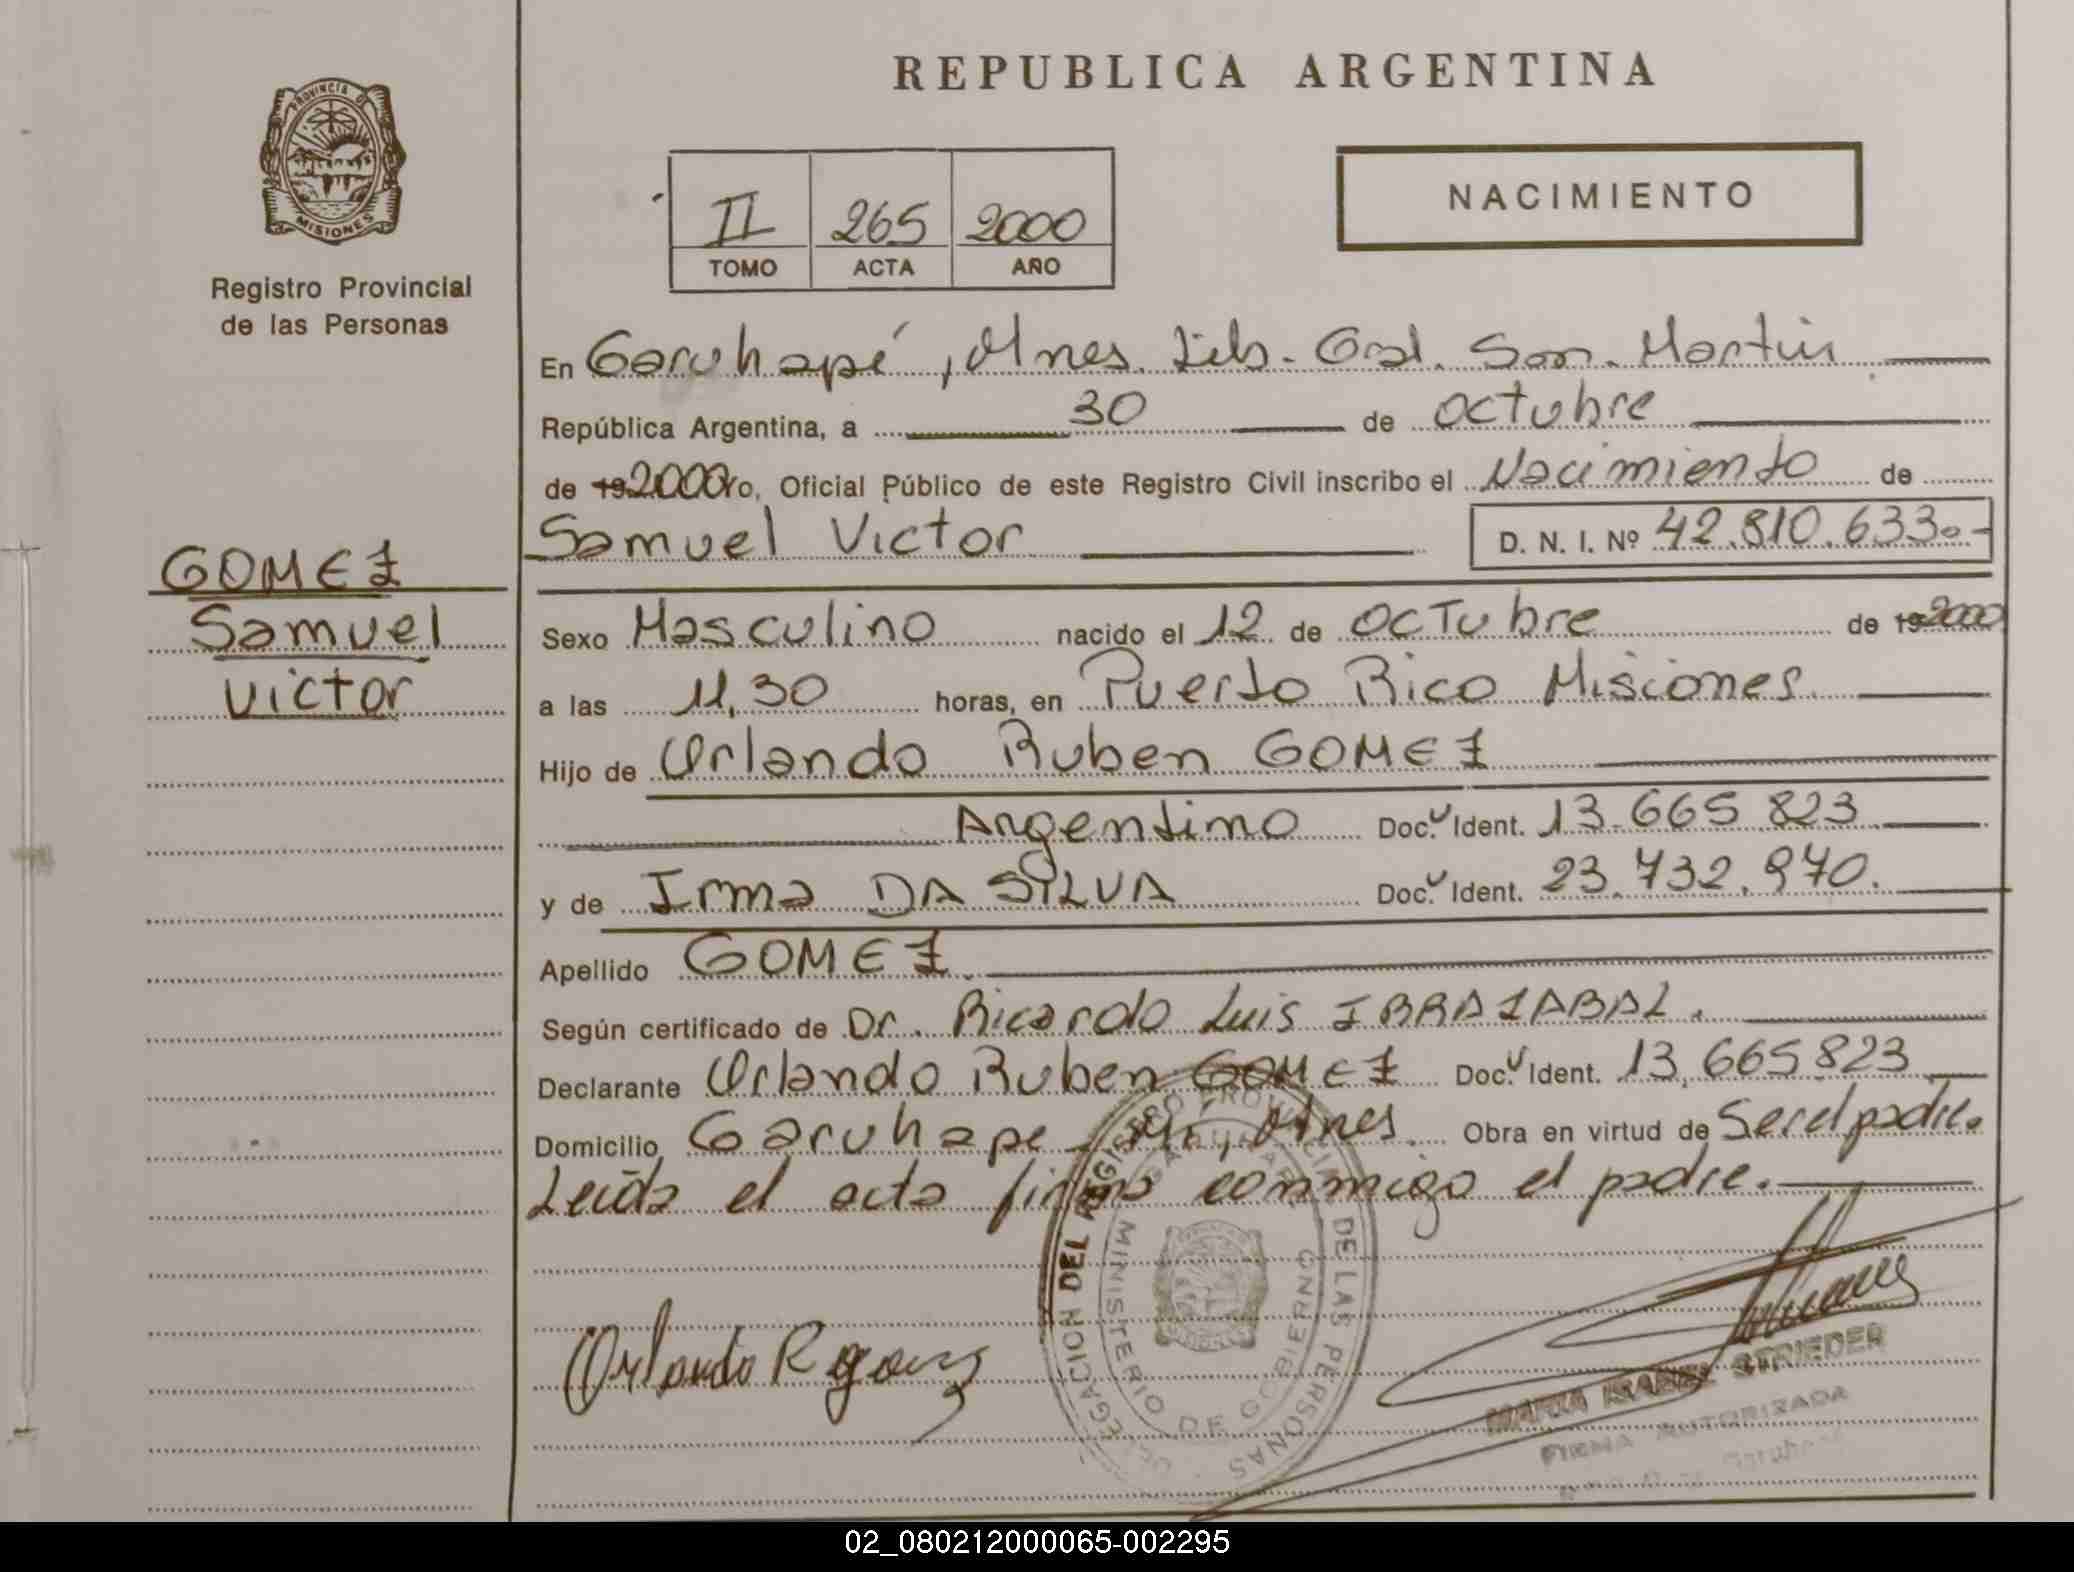 REPUBLICA ARGENTINA
PROVINCIA D
MISIONES
Registro Provincial
de las Personas
II 265 2000
TOMO ACTA AÑO
NACIMIENTO
En Garuhapé, Mnes. Lib. Gral. San. Martin
República Argentina, a 30 de octubre
de 19 2000 Yo, Oficial Público de este Registro Civil inscribo el Nacimiento de
Samuel Victor D. N. I. Nº 42.810.633.-
GOMEZ
Samuel
Victor
Sexo Masculino nacido el 12 de octubre de 19 2000
a las 11,30 horas, en Puerto Rico Misiones.
Hijo de Orlando Ruben GOMEZ
Argentino Doc. Ident. 13.665.823
y de Irma DA SILVA Doc. Ident. 23.732.970.
Apellido GOMEZ.
Según certificado de Dr. Ricardo Luis IRRAZABAL.
Declarante Orlando Ruben GOMEZ Doc. Ident. 13.665823
Domicilio Garuhape - Mi, Mnes. Obra en virtud de Ser el padre.
Leída el acta firma conmigo el padre.
DELEGACION DEL REGISTRO PROVINCIAL DE LAS PERSONAS
MINISTERIO DE GOBIERNO
Orlando R gomez
MARIA ISABEL STRIEDER
FIRMA AUTORIZADA
02_080212000065-002295